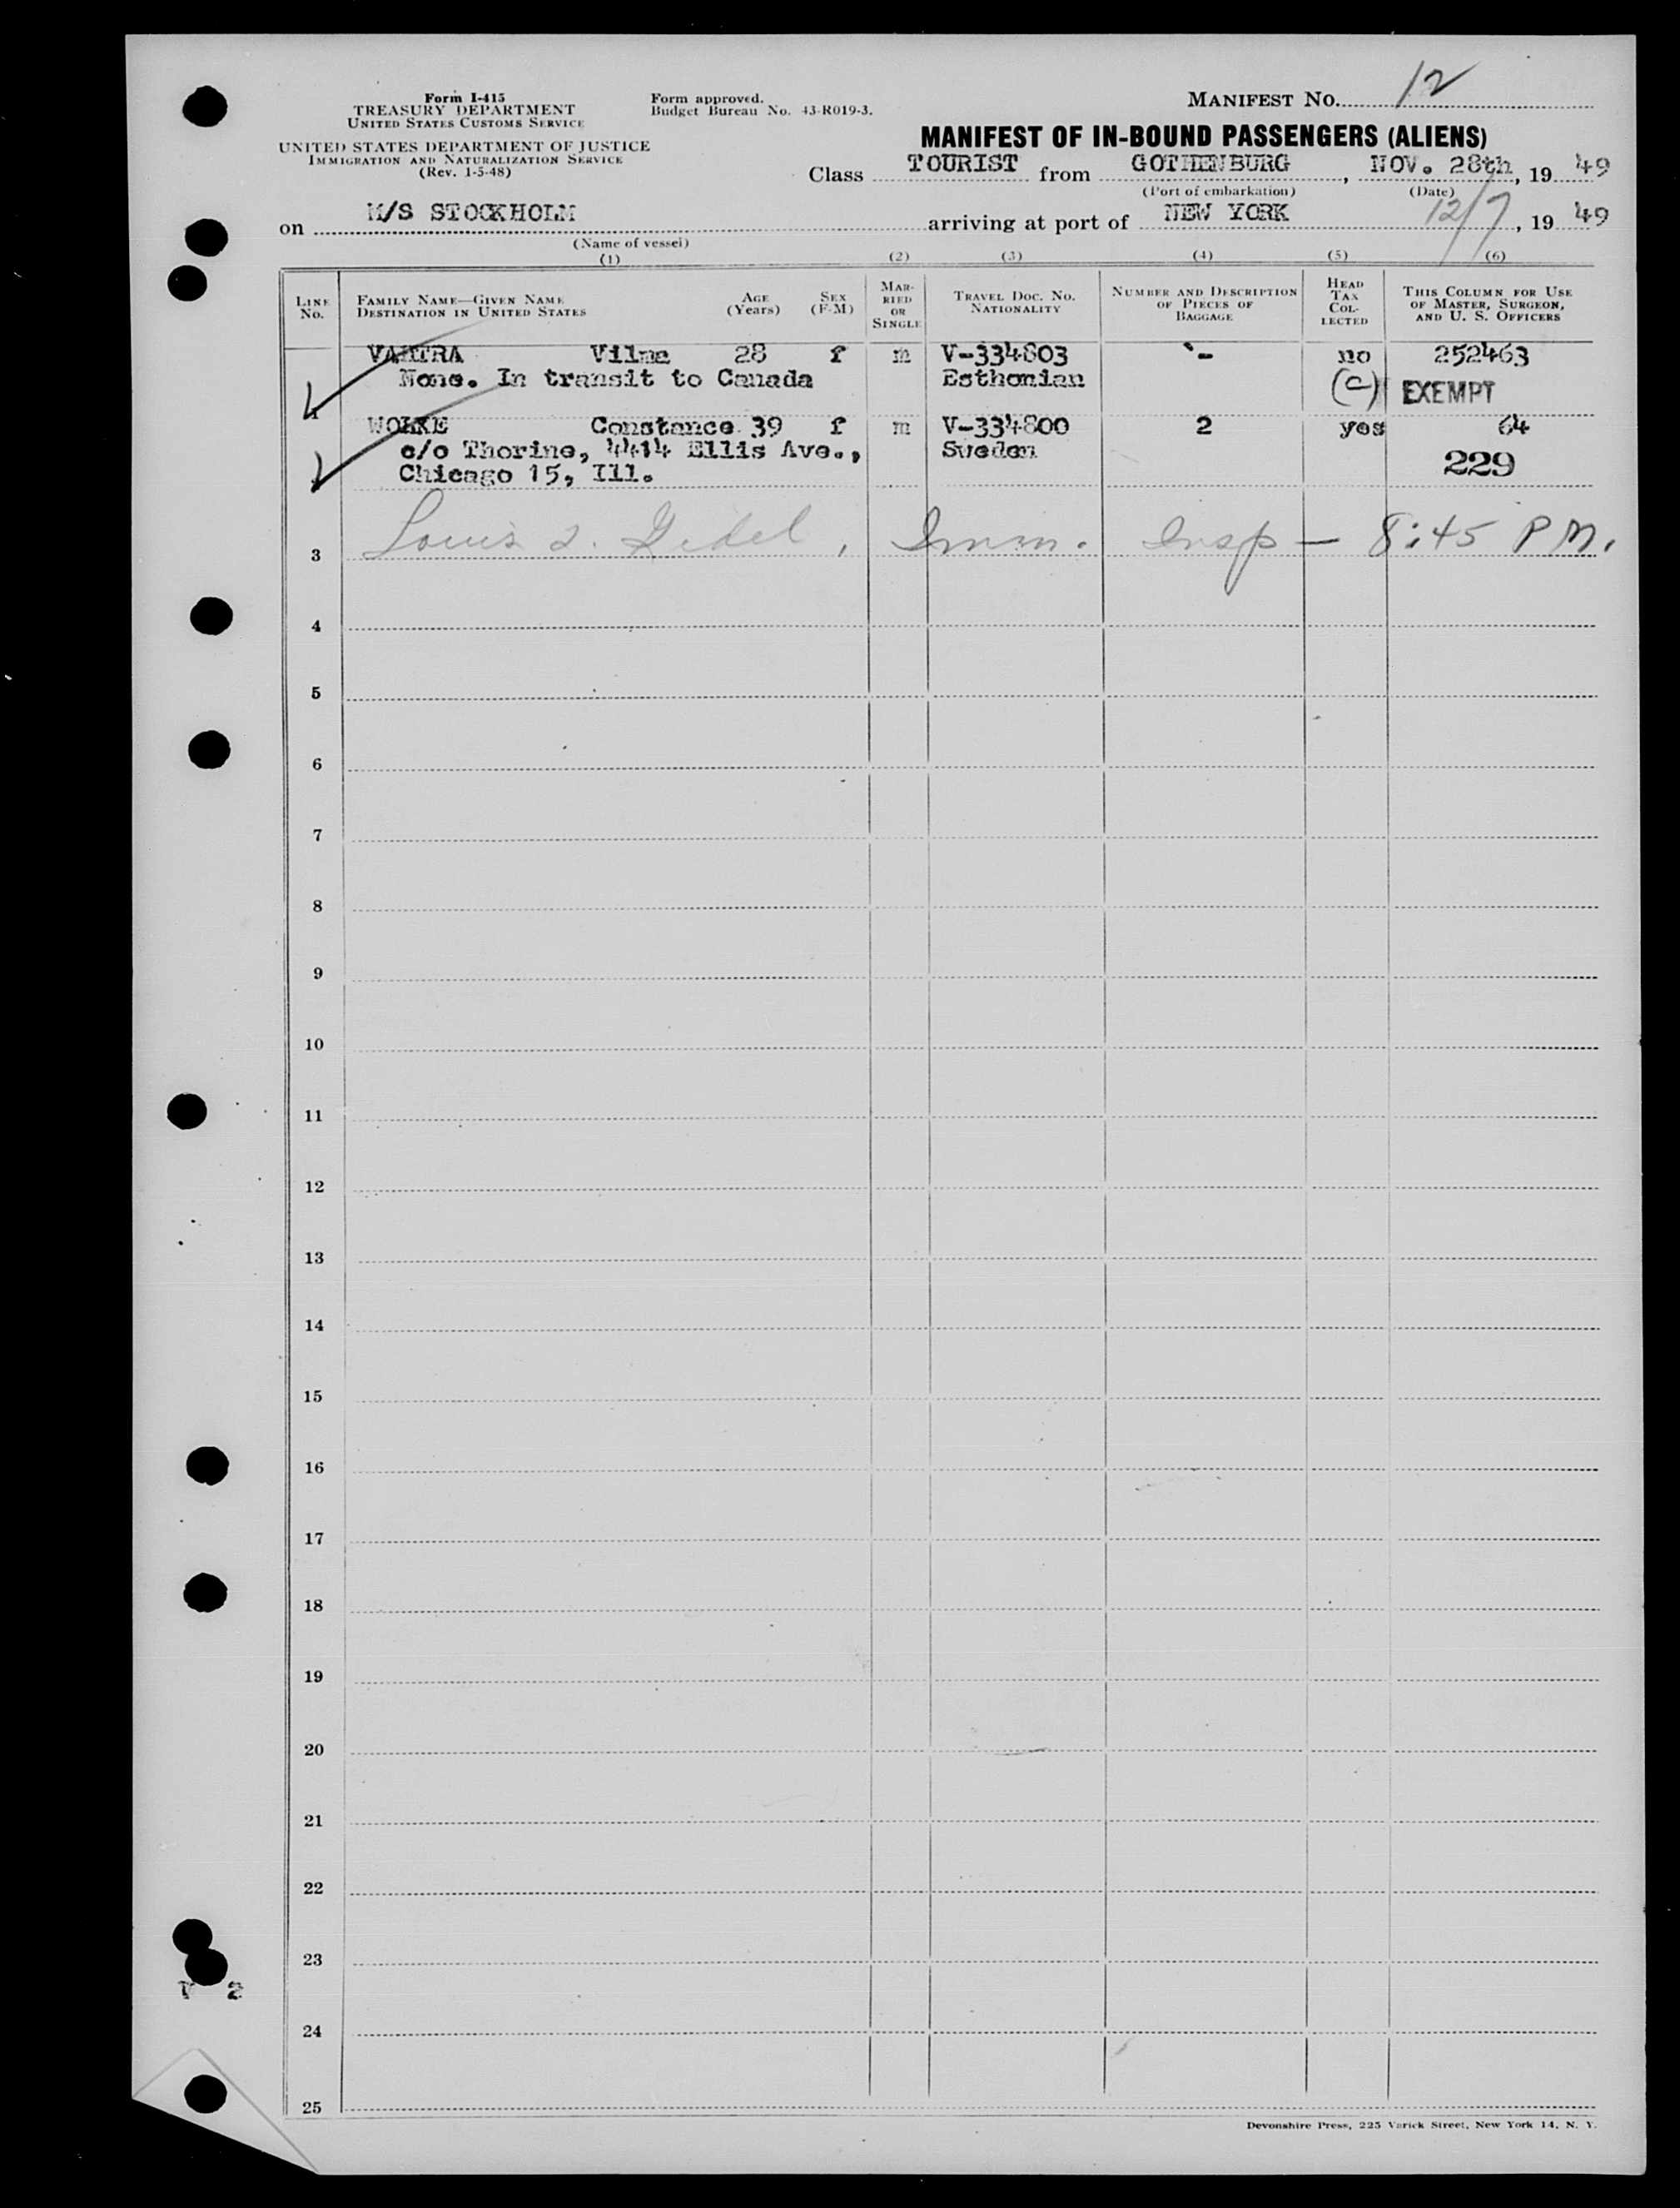 Form I-415
TREASURY DEPARTMENT
UNITED STATES CUSTOMS SERVICE
UNITED STATES DEPARTMENT OF JUSTICE
IMMIGRATION AND NATURALIZATION SERVICE
(Rev. 1-5-48)
Form approved.
Budget Bureau No. 43-R019-3.
MANIFEST NO. 12
MANIFEST OF IN-BOUND PASSENGERS (ALIENS)
Class TOURIST from GOTHENBURG, NOV. 28th, 19 49
(Port of embarkation) (Date)
on M/S STOCKHOLM arriving at port of NEW YORK 12/7, 19 49
(Name of vessel)
(1) (2) (3) (4) (5) (6)
LINE NO.
FAMILY NAME—GIVEN NAME
DESTINATION IN UNITED STATES
AGE (Years)
SEX (F-M)
MARRIED OR SINGLE
TRAVEL DOC. NO.
NATIONALITY
NUMBER AND DESCRIPTION OF PIECES OF BAGGAGE
HEAD TAX COLLECTED
THIS COLUMN FOR USE OF MASTER, SURGEON, AND U. S. OFFICERS
Vilma 28 f m V-334803 - no 252463
None. In transit to Canada Esthonian (C) EXEMPT
Constance 39 f m V-334800 2 yes 64
c/o Thorine, 4414 Ellis Ave., Sweden 229
Chicago 15, Ill.
3 Louis Imm. Insp — 8:45 P M.
4
5
6
7
8
9
10
11
12
13
14
15
16
17
18
19
20
21
22
23
24
25
T 2
Devonshire Press, 225 Varick Street, New York 14, N. Y.